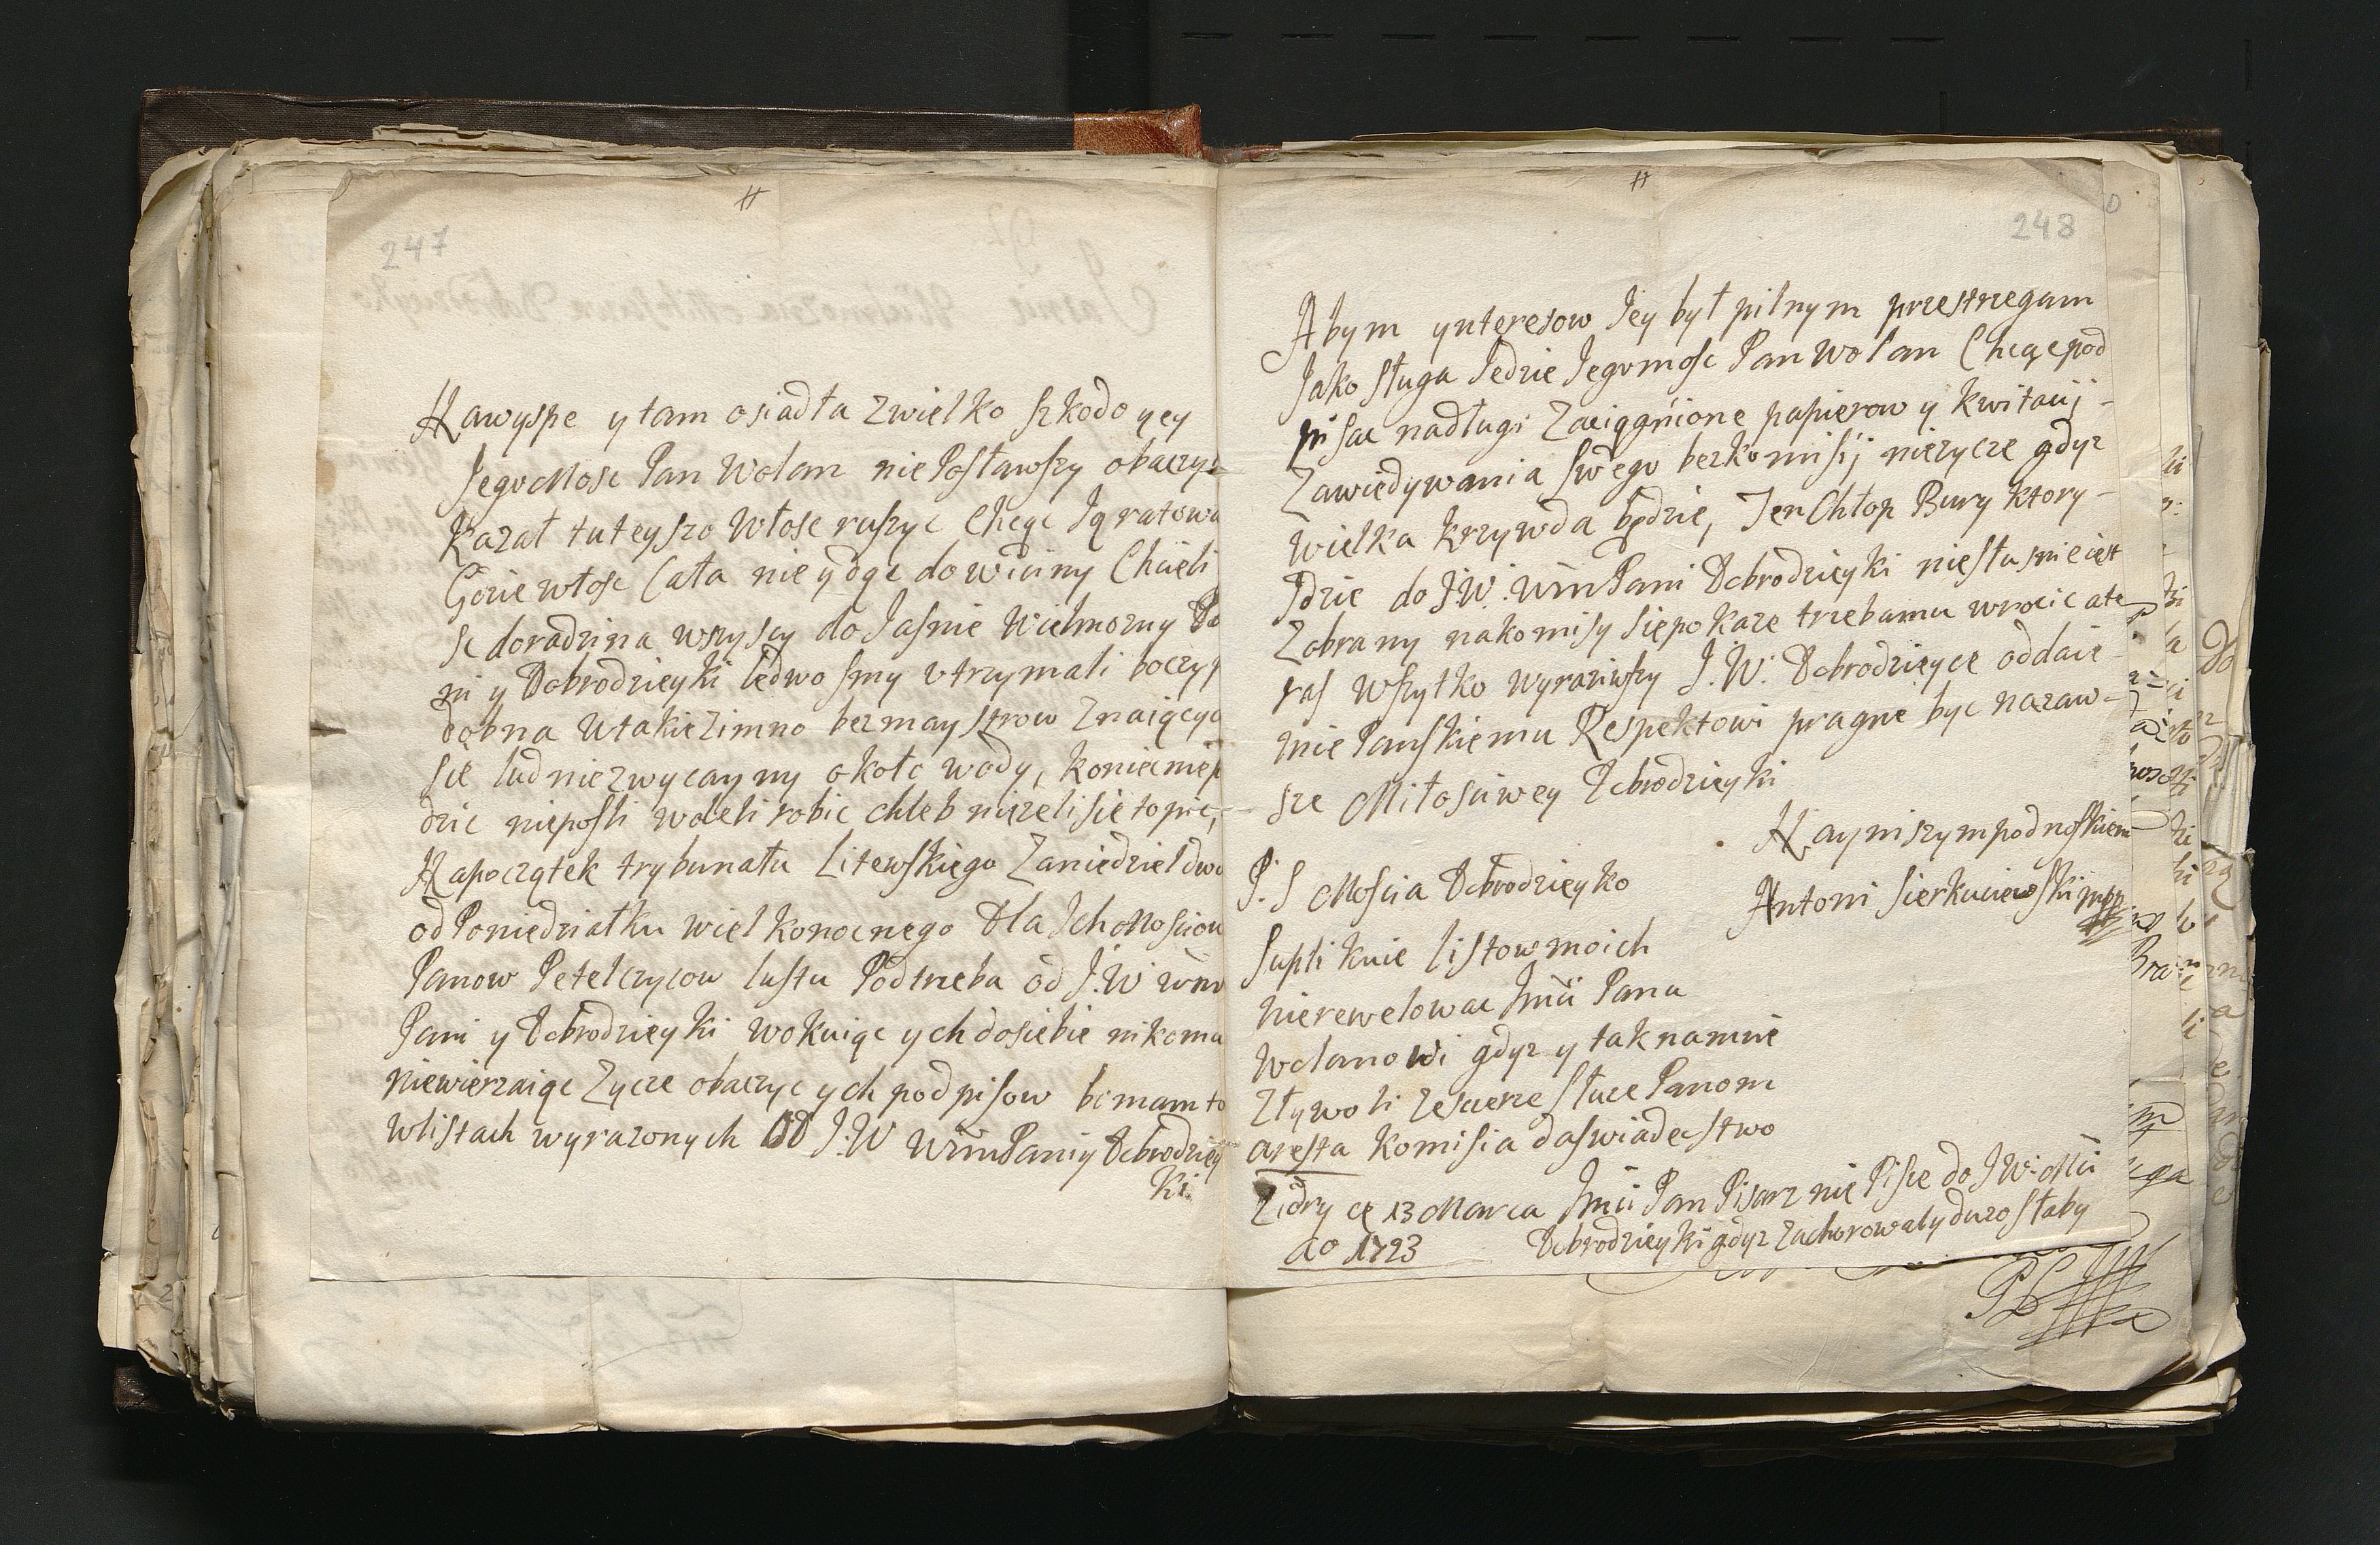 247
Nawyspe y tam osiadła zwielko szkodo yey
JegoMosc Pan Wolan niePosławszy obaczyc
Kazał tuteyszo Włosc ruszyc chcąc Ją ratowa
Gdzie włosc Cała nie ydąc dowiciny Chcieli
sc doradzina wszyscy do Jasnie Wielmozny Pa
ni y Dobrodzieyki ledwo smy utrzymali boczy p
dobna Utakie zimno bez maystrow Znaiącyc
sie lud niezwyczayny około wody, koniecznie p
dzic nieposli woleli robic chleb nizeli sie topic,
Napoczątek trybunału Litewskiego Zaniedziel dwi
od Poniedziałku wielkonocnego Dla IchMosciow
Panow Petelczycow lustu Podtrzeba od J.W wm
Pani y Dobrodzieyki wokuiąc ych dosiebie nikomu
niewierzaiąc Zycze obaczyc ych podpisow bo mam to
wlistach wyrazonych Od J.W WmPaniy Dobrodziey
ki
248
Abym ynteresow Jey był pilnym przestrzegam
Jako sługa Jedzie Jegomosc Pan Wolan Chcąc pod
pisac nadługi Zaciągnione papierow y kwitacij
Zawiedywania swego bez komisij niezycze gdyz
Wielka krzywda będzie, Ten Chłop Bury ktory
Jdzie do J.W. WmPani Dobrodzieyki niesłusznie iest
Zobrany nakomisy siepokaze trzebamu wrocic ate
ras wszytko wyraziwszy J.W. Dobrodzieyce oddaie
mie Panskiemu Respektowi pragne byc nazaw
sze Miłosciwey Dobrodzieyki
Nayniszym podnoskiem
Antoni Sierkuciewski mpp
P.S Moscia Dobrodzieyko
Suplikuie listow moich
nierewelowac Jmci Panu
Wolanowi gdyz y tak namnie
Zły woli ze sczerze słuze Panom
areszta komisia daswiadectwo
Zidry ce 13 Marca Jmci Pan Pisarz nie Pisze do JW. Mci
Ao 1723 Dobrodzieyki gdyz zachorowały duzo słaby